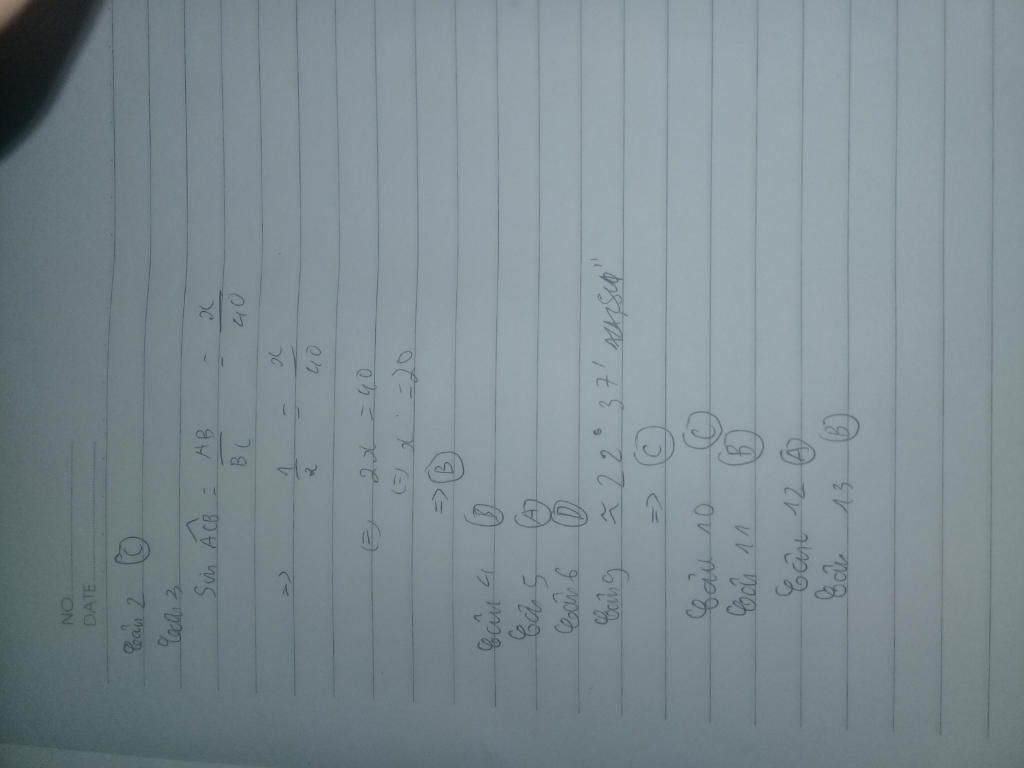 NO.
DATE
Câu 2 C
Câu 3
Sin ACB = AB/BC = x/40
=> 1/2 = x/40
(=) 2x = 40
(=) x = 20
=> B
Câu 4 B
Câu 5 A
Câu 6 D
Câu 9 ≈ 22° 37'
=> C
Câu 10 C
Câu 11 B
Câu 12 A
Câu 13 B